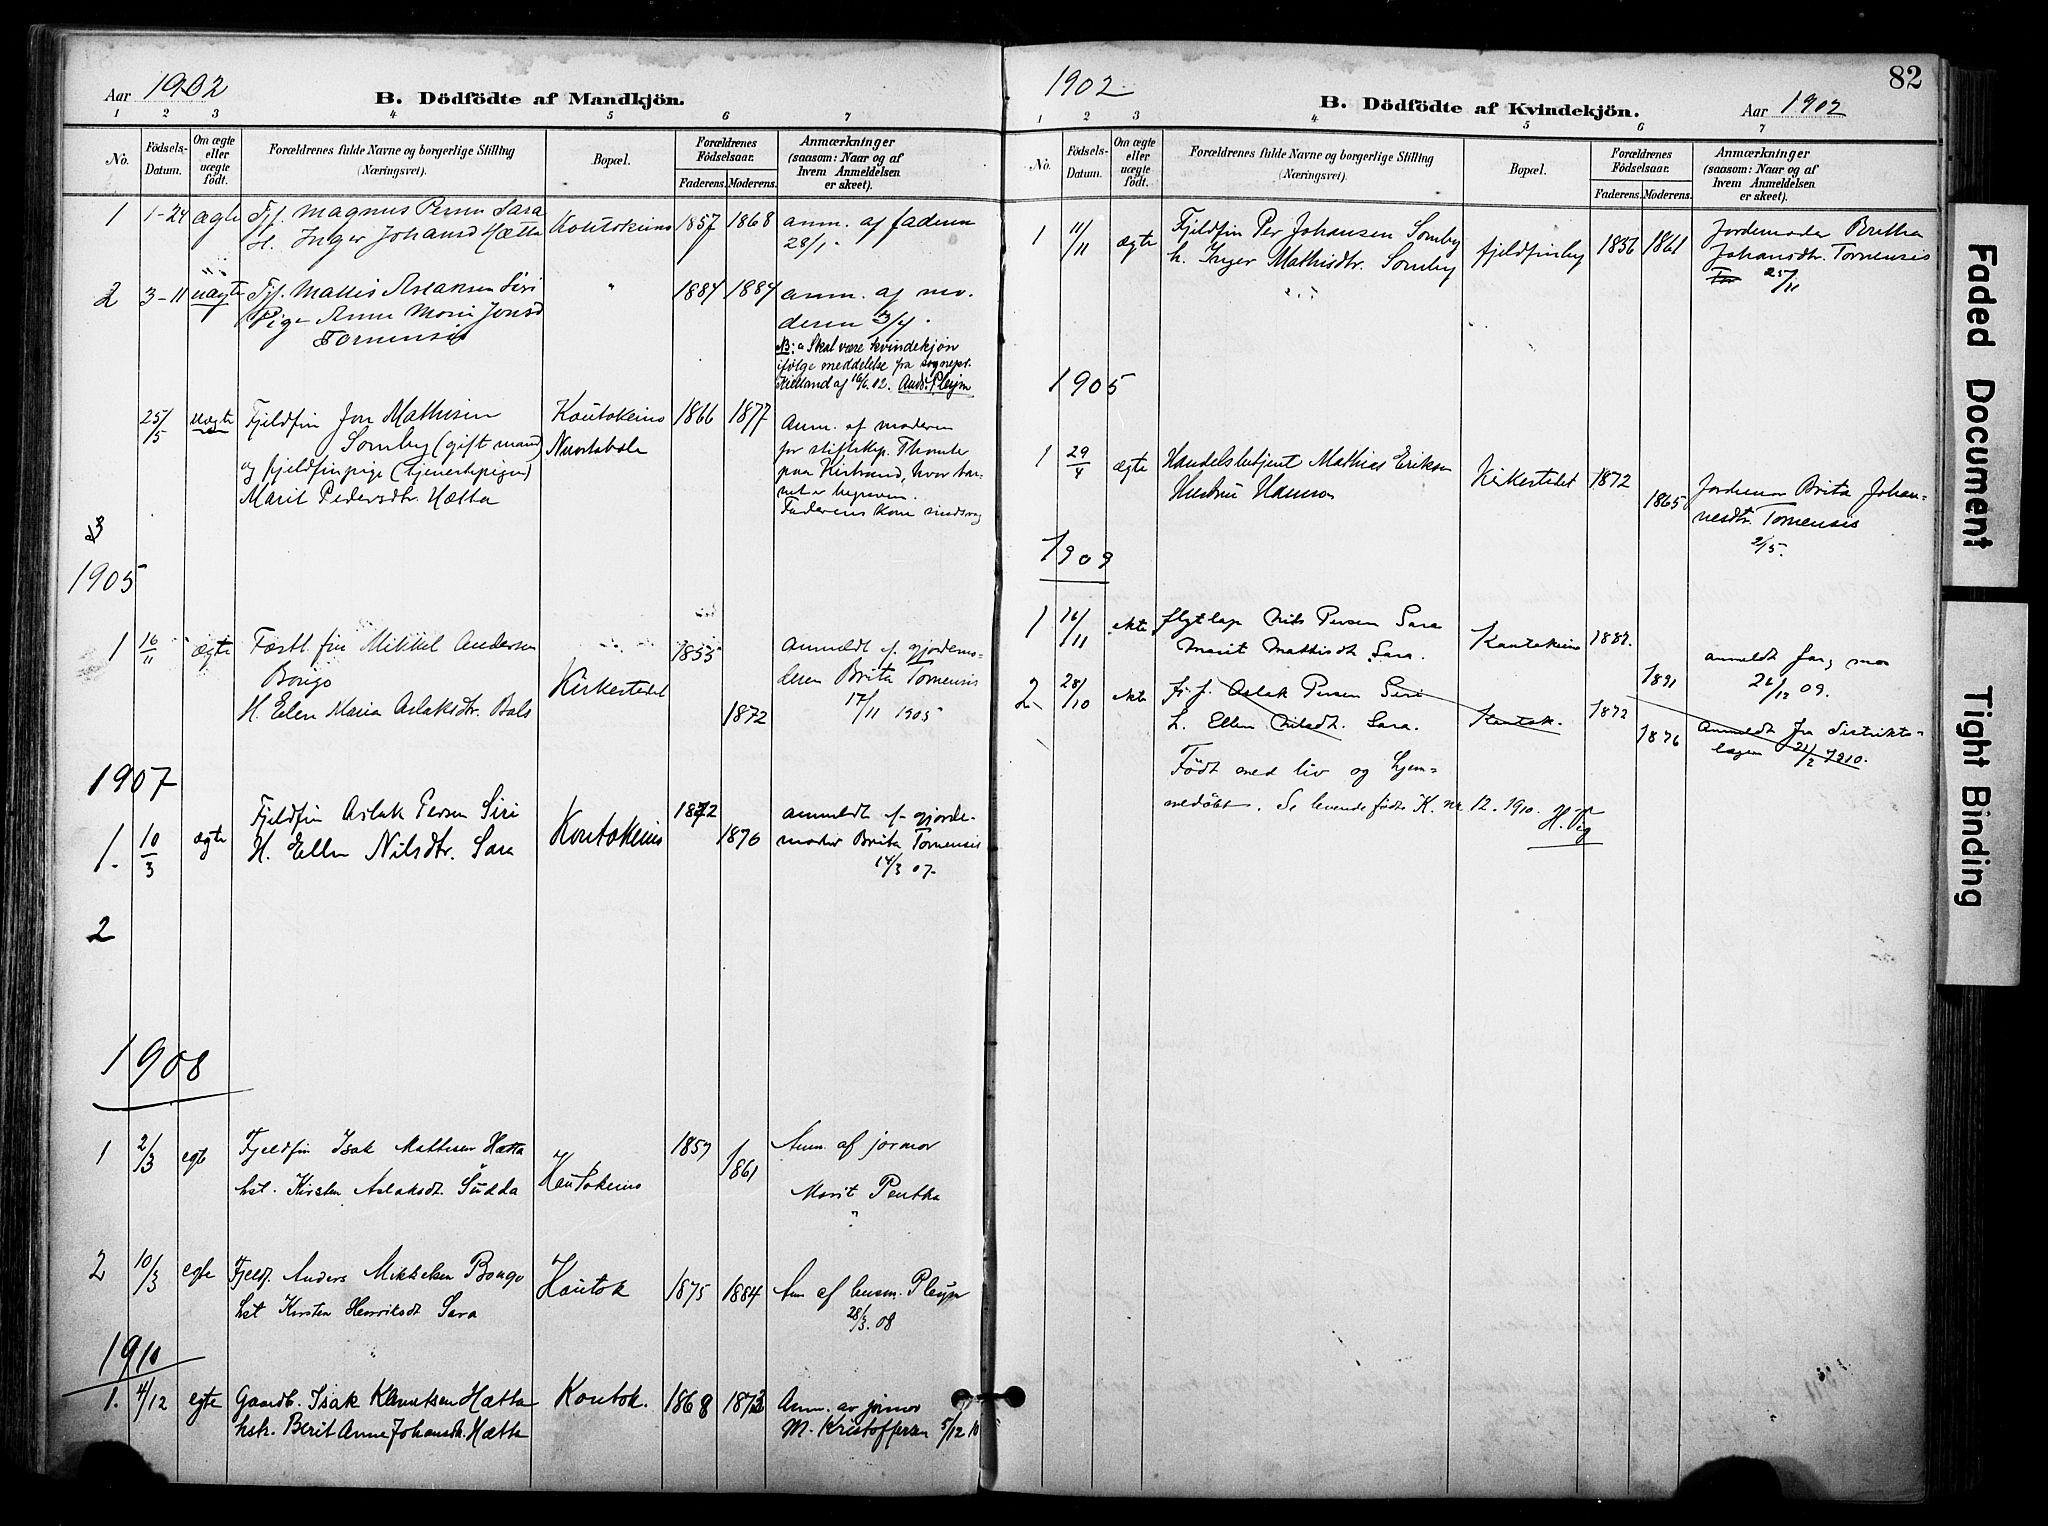 Aar 1902
B. Dödfödte af Mandkjön.
1 2 3 4 5 6 7
No.
Födsels-Datum.
Om ægte eller uægte födt.
Forældrenes fulde Navne og borgerlige Stilling
(Næringsvei).
Bopæl.
Forældrenes Fødselsaar.
Faderens. Moderens.
Anmærkninger
(saasom: Naar og af
hvem Anmeldelsen
er skeet).
1 1-24 ægte Fjf. Magnus Persen Sara Koutokeino 1857 1868 anm. af faderen
H. Inger Johansd Hætta 28/1
2 3-11 uægte Fjf. Mattis Aslaksen Siri " 1884 1884 anm. af mo-
Pige Anne Marie Jonsd deren 3/4.
Tornensis
NB: Skal være kvindekjön
ifölge meddelelse fra sognepr.
Kielland af 16/6 02. Ands. Pleym
25/5 uægte Fjeldfin Jon Mathisen Koutokeino 1866 1877 Anm. af moderen
Somby (gift mand) for stiftskap. Thomle
og fjeldfinpige (tjenestepige) paa Kistrand, hvor bar-
Marit Pedersdtr. Hætta net er begraven.
Faderens kone sindssvag
3
1905
1 16/11 ægte Fastb. fin Mikkel Andersen 1855 Anmeldt af gjordemo-
Bongo Kirkestedet deren Brita Tornensis
H. Elen Maria Aslaksdtr. Bals 1872 17/11 1905
1907
1. 10/3 ægte Fjeldfin Aslak Persen Siri Koutokeino 1872 anmeldt af gjorde-
H. Ellen Nilsdtr. Sara 1876 moder Brita Tornensis
14/3 07.
2
1908
1 2/3 egte Fjeldfin Isak Mathisen Hætta Koutokeino 1857 1861 Anm. af jormor
hst. Kirsten Aslaksdt. Sudda Marit Pentha
2 10/3 egte Fjeldf. Anders Mikkelsen Bongo Koutok 1875 1884 Anm af lensm. Pleym
hst Kirsten Henriksdt Sara 28/3. 08
1910
1. 4/12 egte Gaardb. Isak Klemetsen Hætta Koutok. 1868 1873 Anm. av jormor
hstr. Berit Anne Johansdt. Hætta M. Kristoffersen 5/12 10
82
1902
B. Dödfödte af Kvindekjön.
Aar 1902
1 2 3 4 5 6 7
No.
Födsels-Datum.
Om ægte eller uægte födt.
Forældrenes fulde Navne og borgerlige Stilling
(Næringsvei).
Bopæl.
Forældrenes Fødselsaar.
Faderens. Moderens.
Anmærkninger
(saasom: Naar og af
hvem Anmeldelsen
er skeet).
1 11/11 ægte Fjeldfin Per Johansen Somby fjeldfinby 1856 1861 Jordemoder Britha
h. Inger Mathisdtr. Somby Johansdtr. Tornensis
25/11
1905
1 29/4 ægte Handelsbetjent Mathias Eriksen Kirkestedet 1872
Hustru Hansen 1865 Jordemor Brita Johan-
nesdtr. Tornensis
2/5.
1909
1 16/11 ekte flytlap Nils Persen Sara Kautokeino 1887.
Marit Mathisdt. Sara. 1891 anmeldt far, mor
26/12 09.
2 28/10 ekte fj.f. Aslak Persen Siri Kautok. 1872
h. Ellen Nilsdt. Sara. 1876 Anmeldt fra distrikts-
lægen 21/2 1910.
Födt med liv og hjem-
medöbt. Se levende födte K. nr. 12. 1910.
Faded Document
Tight Binding